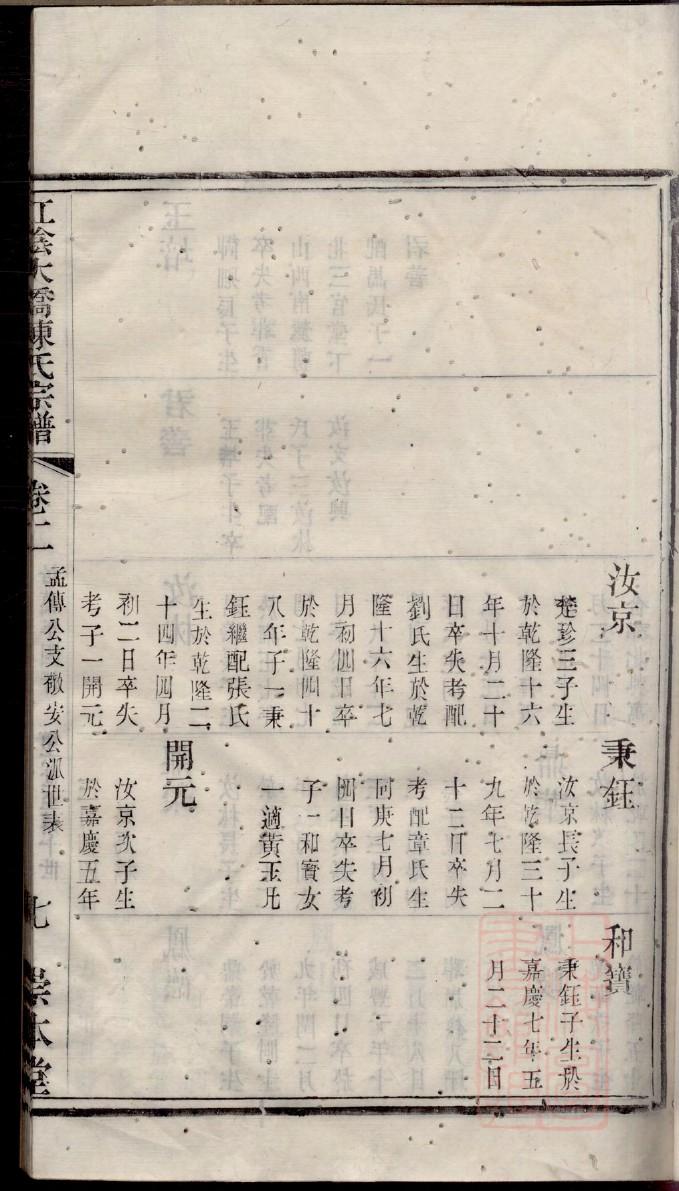 汝京
楚珍三子生
於乾隆十六
年十月二十
日卒失考配
劉氏生於乾
隆十六年七
月初四日卒
於乾隆四十
八年子一秉
鈺繼配張氏
生於乾隆二
十四年四月
初二日卒失
考子一開元
秉鈺
汝京長子生
於乾隆三十
九年七月二
十二日卒失
考配章氏生
同庚七月初
四日卒失考
子一和寶女
一適黃玉比
開元
汝京次子生
於嘉慶五年
和寶
秉鈺子生於
嘉慶七年五
月二十二日
江陰大橋陳氏宗譜
卷二
孟傳公支敬安公派世表
七
崇本堂